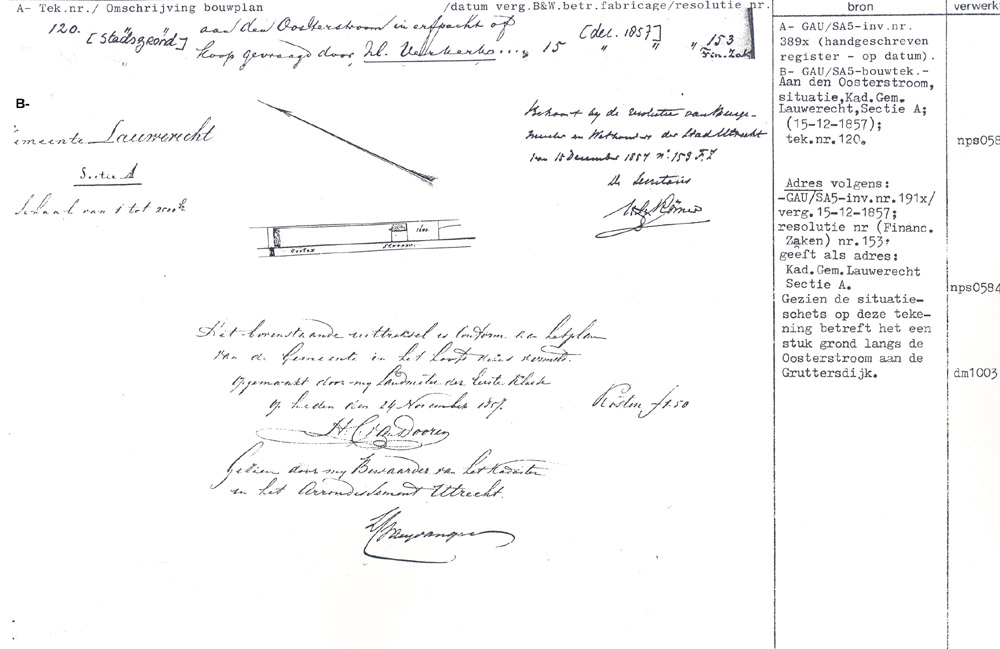 A- Tek.nr./ Omschrijving bouwplan /datum verg.B&W.betr.fabricage/resolutie nr. bron verwerk
120. aan den Oosterstroom in erfpacht of
[Stadsgrond] koop gevraagd door, H. Verkerk...., 15 [dec. 1857] " " 153
Fin. Zak
B-
emeente Lauwerecht
Sectie A
Schaal van 1 tot 2500
Behoort bij de resolutie van Burge-
meester en Wethouders der Stad Utrecht
van 15 December 1857 no. 153 F.Z
De Secretaris
Ooster Stroom
Het bovenstaande uittreksel is conform aan het plan
van de Gemeente in het hoofd dezes vermeld.
Opgemaakt door my Landmeter der Eerste Klasse
op heden den 24 November 1857.
Kosten f 1.50
H. C. van Dooren
Gezien door my Bewaarder van het Kadaster
in het Arrondissement Utrecht.
A- GAU/SA5-inv.nr.
389x (handgeschreven
register - op datum).
B- GAU/SA5-bouwtek.-
Aan den Oosterstroom,
situatie,Kad.Gem.
Lauwerecht,Sectie A;
(15-12-1857);
tek.nr.120.
nps058
Adres volgens:
-GAU/SA5-inv.nr.191x/
verg.15-12-1857;
resolutie nr (Financ.
Zaken) nr.153,
geeft als adres:
Kad.Gem.Lauwerecht
Sectie A.
nps0584
Gezien de situatie-
schets op deze teke-
ning betreft het een
stuk grond langs de
Oosterstroom aan de
Gruttersdijk.
dm1003